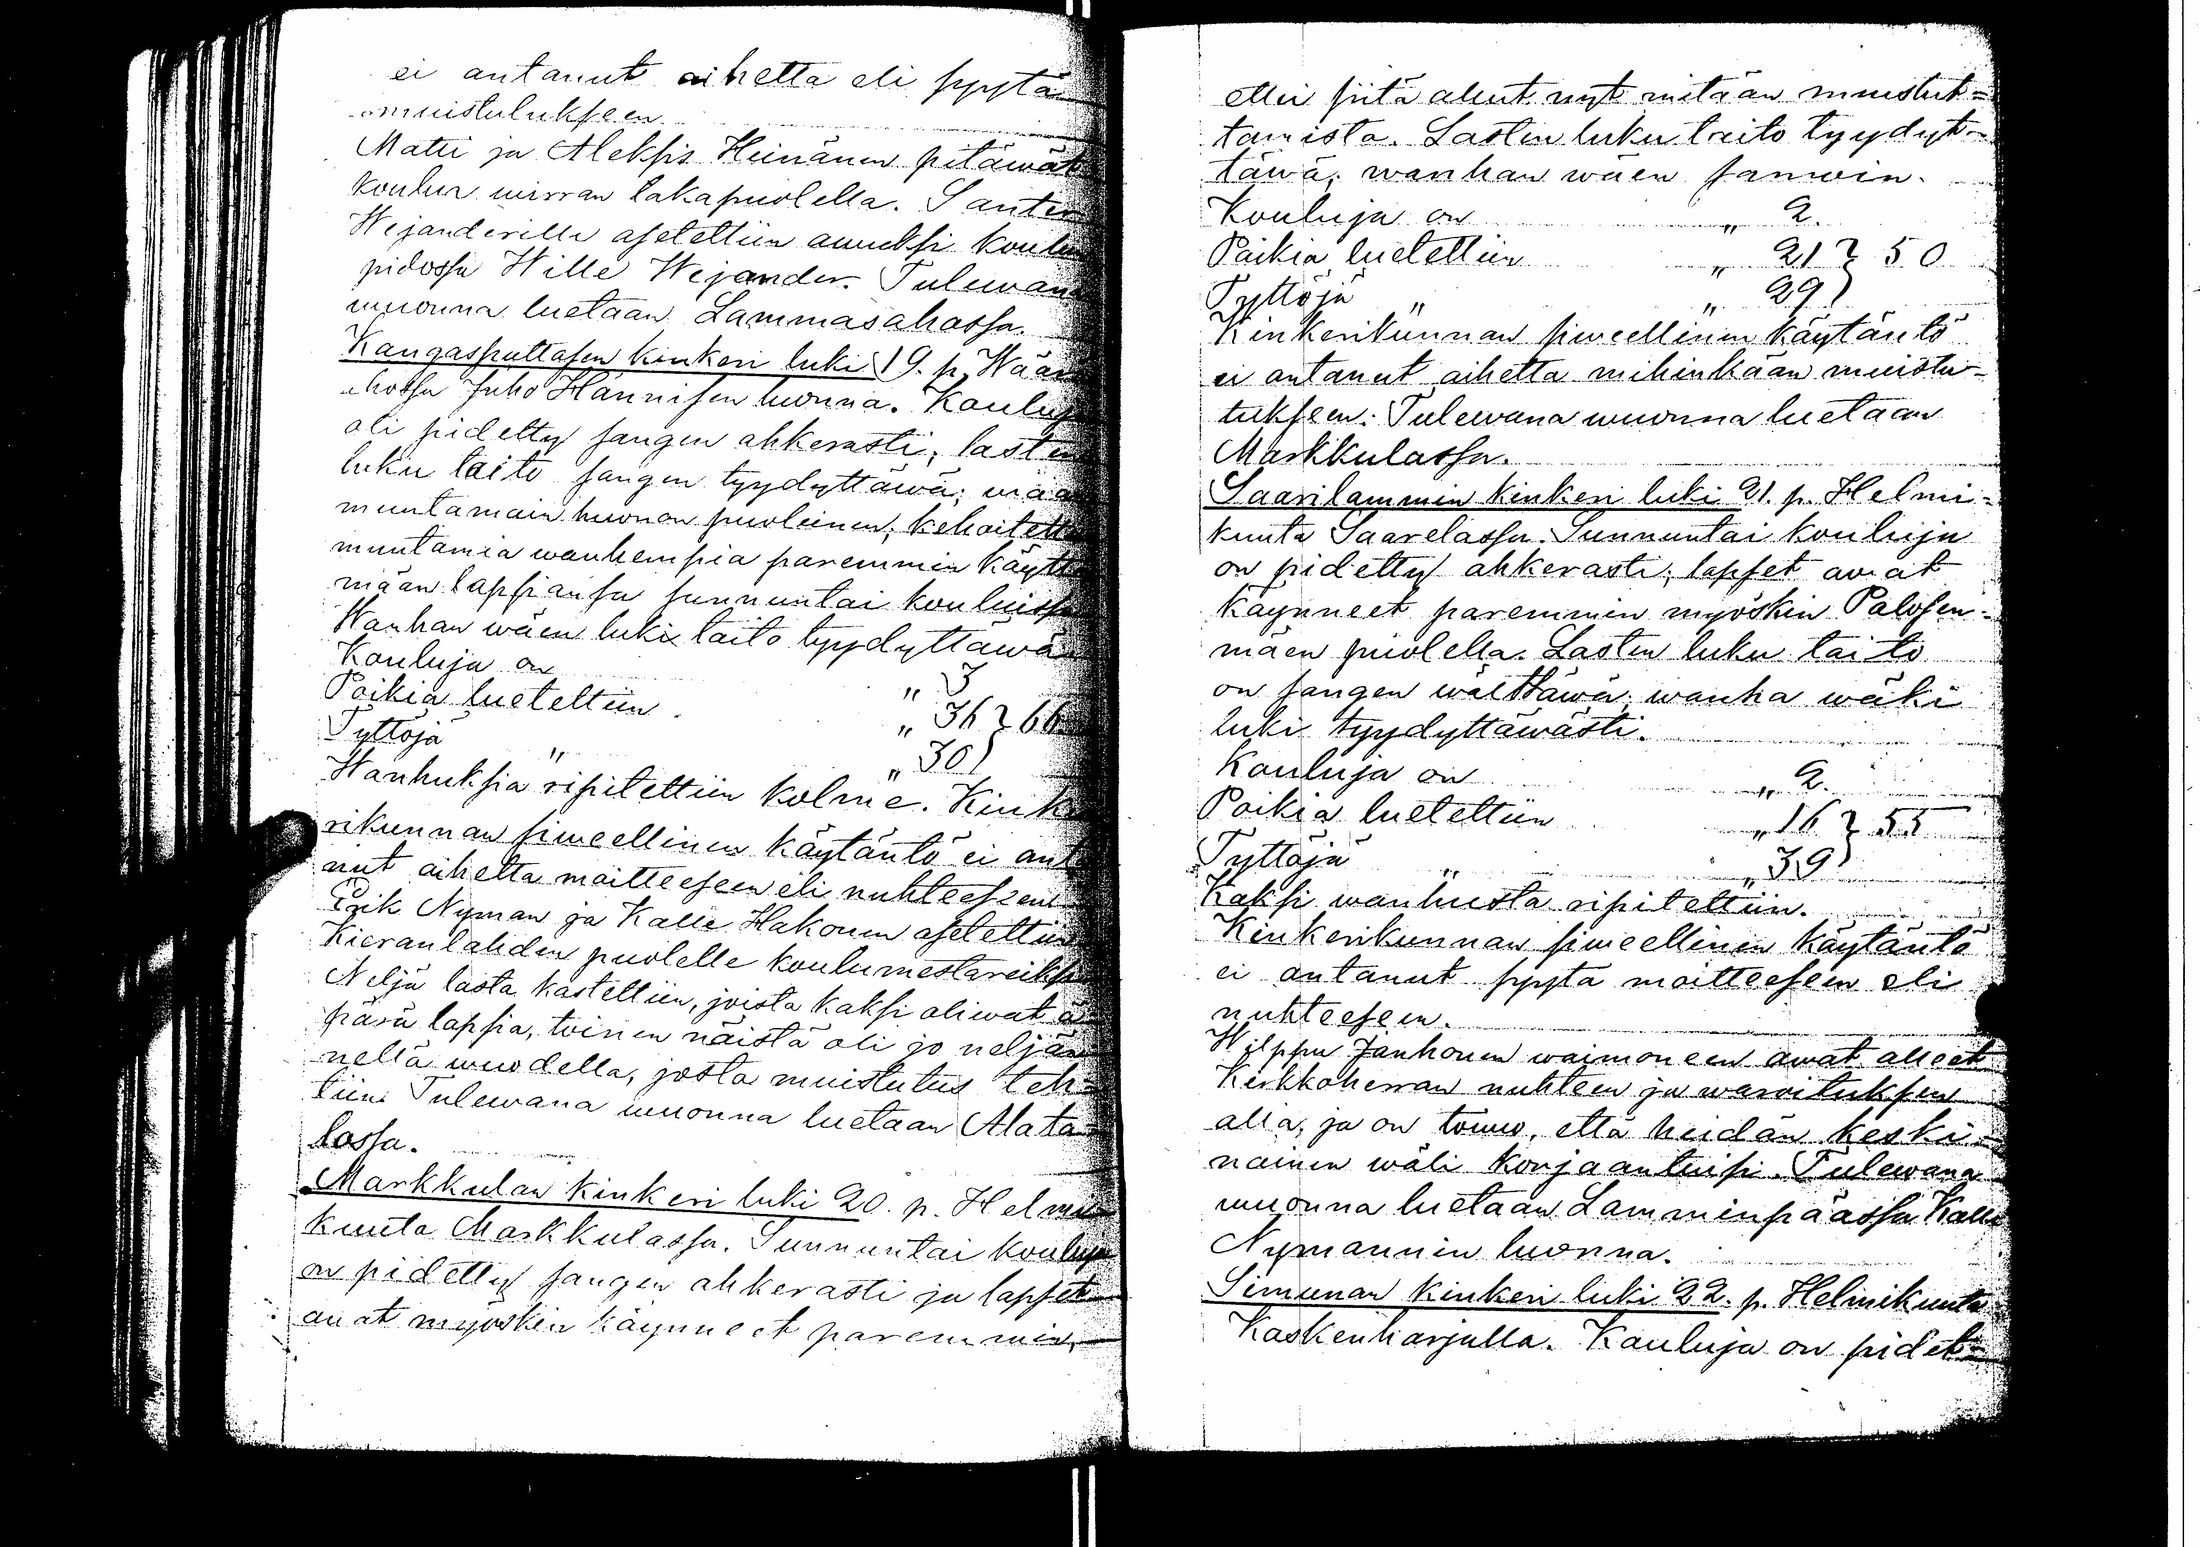 ei antanut aihetta eli syytä
muistutukseen
Matti ja Aleksis Heinänen pitäwät
koulua wirran takapuolella. Santeri
Wejanderille asetettiin awuksi koulun
pidossa Wille Wejander. Tulewana
wuonna luetaan Lammasahossa.
Kangasputtasen kinkeri luki 19. p.
Juho Hännisen luonna. Kouluja
oli pidetty sangen ahkerasti, lasten
luku taito sangen tyydyttäwä; waan
muutamain huonon puoleinen; kehoitettu
muutamia wanhempia paremmin käyttä
mään lapsiansa sunnuntai kouluissa
Wanhan wäen luku taito tyydyttäwä
Kouluja on " 3
Poikia luetettiin " 36 } 66
Tyttöjä " " 30 }
Wanhuksia ripitettiin kolme. Kinke
rikunnan siweellinen käytäntö ei anta
nut aihetta moitteeseen eli nuhteeseen
Erik Nyman ja Kalle Hakonen asetettiin
Kieranlahden puolelle koulumestareiksi
Neljä lasta kastettiin, joista kaksi oliwat ä
pärä lapsia, toinen näistä oli jo neljän
nellä wuodella, josta muistutus teh-
tiin. Tulewana wuonna luetaan Alata
lossa.
Markkulan kinkeri luki 20. p. Helmi
kuuta Markkulassa. Sunnuntai kouluja
on pidetty sangen ahkerasti ja lapset
awat myöskin käynneet paremmin,
ellei siitä ollut nyt mitään muistut=
tamista. Lasten luku taito tyydyt-
täwä; wanhan wäen samoin.
Kouluja on " 2.
Poikia luetettiin " 21 } 50
Tyttöjä " " 29 }
Kinkerikunnan siweellinen käytäntö
ei antanut aihetta mihinkään muistu-
tukseen. Tulewana wuonna luetaan
Markkulassa.
Saarilammin kinkeri luki 21. p. Helmi=
kuuta Saarelassa. Sunnuntai kouluja
on pidetty ahkerasti; lapset awat
käynneet paremmin myöskin Palosen-
mäen puolella. Lasten luku taito
on sangen wälttäwä; wanha wäki
luki tyydyttäwästi.
Kouluja on " 2.
Poikia luetettiin " 16 } 55
Tyttöjä " " 39 }
Kaksi wanhusta ripitettiin.
Kinkerikunnan siweellinen käytäntö
ei antanut syytä moitteeseen eli
nuhteeseen.
Wilppu Janhonen waimoneen awat olleet
Kirkkoherran nuhteen ja waroituksen
alla, ja on toiwo, että heidän keski-
näinen wäli korjaantuisi. Tulewana
wuonna luetaan Lamminpäässä Kalle
Nymannin luonna.
Simunan kinkeri luki 22. p. Helmikuuta
Kaskenharjulla. Kouluja on pidet=